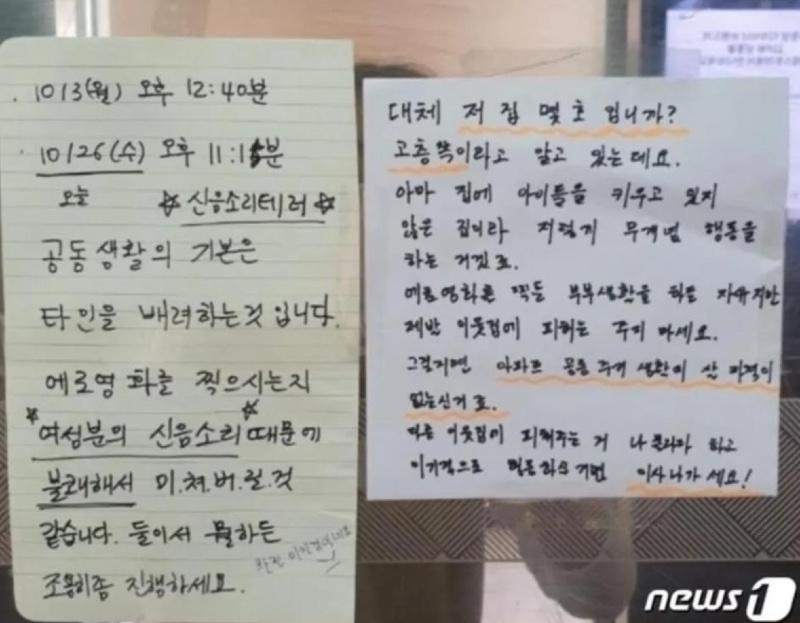 10/3(월) 오후 12:40분
10/26(수) 오후 11:15분
오늘 ☆신음소리테러☆
공동생활의 기본은
타인을 배려하는것 입니다.
에로영화를 찍으시는지
*여성분의 신음소리☆때문에
불쾌해서 미.쳐.버.릴.것
같습니다. 둘이서 뭘하든
조용히좀 진행하세요.
대체 저 집 몇 호 입니까?
고층쪽이라고 알고 있는데요.
아마 집에 아이들을 키우고 있지
않은 집이라 저렇게 무개념 행동을
하는 거겠죠.
에로영화를 찍든 부부생활을 하든 자유지만
제발 이웃집에 피해는 주지 마세요.
그럴거면 아파트 공동 주거 생활에 살 자격이
없는신거죠.
다른 이웃집에 피해주는 거 나 몰라라 하고
이기적으로 행동하실 거면 이사나가세요!
news1